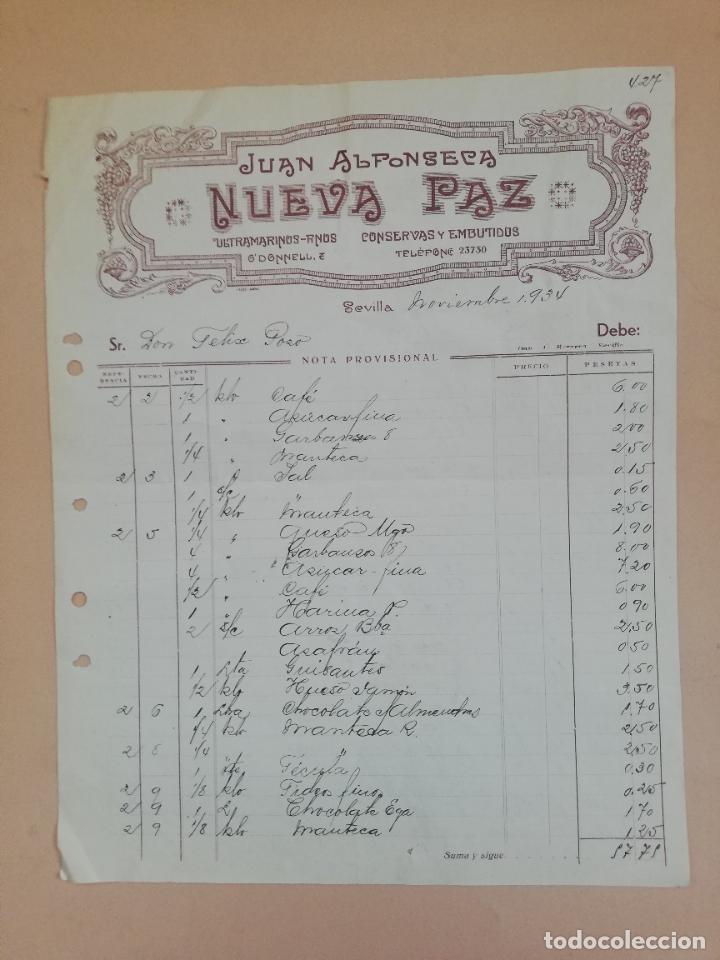 427
JUAN ALFONSECA
NUEVA PAZ
ULTRAMARINOS-FINOS CONSERVAS Y EMBUTIDOS
O'DONNELL, 7 TELÉFONO 23730
Sevilla Noviembre 1.934
Sr. Don Felix Pozo Debe:
NOTA PROVISIONAL
REFERENCIA FECHA CANTIDAD PRECIO PESETAS
2 2 1/2 klo Café 6.00
1 " Azucar fina 1.80
1 " Garbanzos 8 2.00
1/4 " Manteca 2.50
2 3 1 Sal 0.15
1 0.60
1/4 klo Manteca 2.50
2 5 1/4 " Queso Mgo 1.90
4 " Garbanzos 8.00
4 " Azúcar fina 7.20
1/2 " Café 6.00
1 " Harina 0.90
2 Arroz Bba 2.50
Azafrán 0.50
1 Lta Guisantes 1.50
1/2 klo Hueso Jamón 3.50
2 6 1 Chocolate Almendras 1.70
1/4 klo Manteca R. 2.50
2 8 1/4 " " 2.50
1 Fécula 0.30
2 9 1/8 klo Fideos fino 0.25
2 9 1 Chocolate Ega 1.70
2 9 1/8 klo Manteca 1.25
Suma y sigue 57.75
todocoleccion
todocoleccion.net